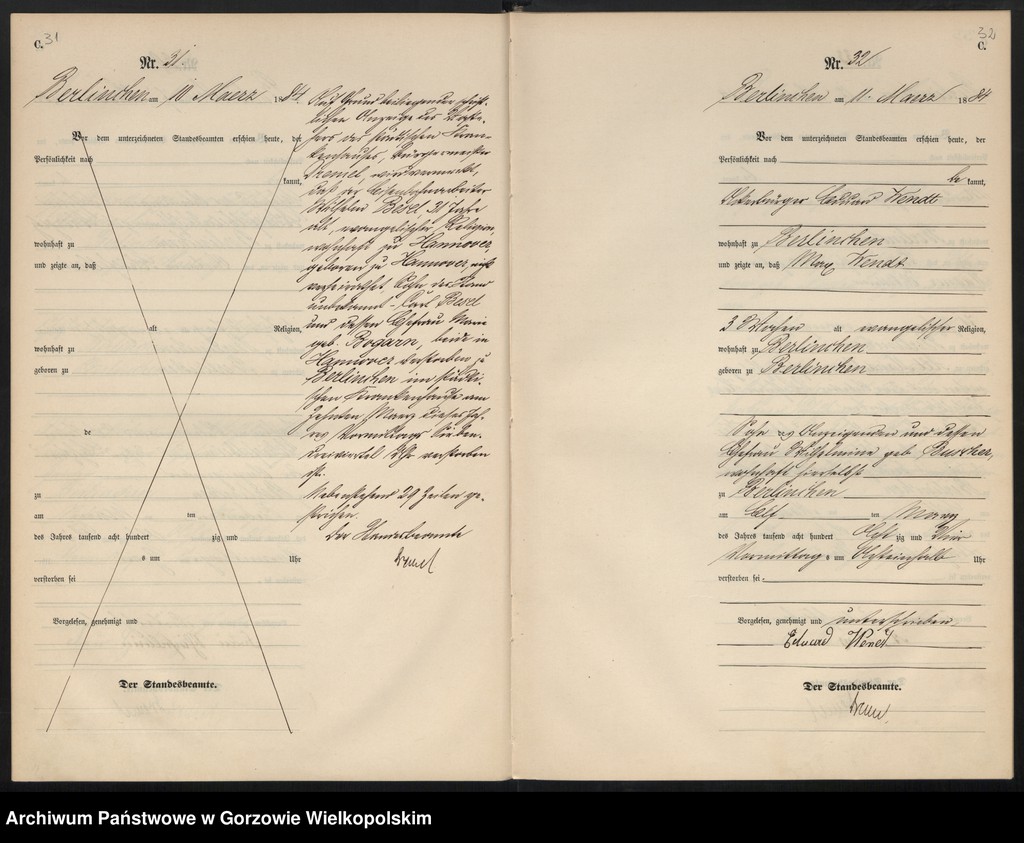 C. 31
Nr. 31.
Berlinchen am 10 Maerz 1884.
Vor dem unterzeichneten Standesbeamten erschien heute, der
Persönlichkeit nach
kannt,
wohnhaft zu
und zeigte an, daß
alt Religion,
wohnhaft zu
geboren zu
de
zu
am ten
des Jahres tausend acht hundert zig und
s um Uhr
verstorben sei
Vorgelesen, genehmigt und
Der Standesbeamte.
Auf Grund beiliegender schrift-
lichen Anzeige des Vorste-
hers des städtischen Kran-
kenhauses, Bürgermeister
wird vermerkt,
daß der Eisenbahnarbeiter
Wilhelm Besel, 21 Jahre
alt, evangelischer Religion,
wohnhaft zu Hannover,
geboren zu Hannover, nicht
verheirathet, Sohn des
unbekannt Carl Besel
und dessen Ehefrau Marie
geb. Bogarn, beide in
Hannover verstorben zu
Berlinchen im städti-
schen Krankenhause am
zehnten Maerz dieses Jah-
res Vormittags sieben-
dreiviertel Uhr verstorben
ist.
Nebenstehend 29 Zeilen ge-
strichen.
Der Standesbeamte
32
C.
Nr. 32
Berlinchen am 11. Maerz 1884
Vor dem unterzeichneten Standesbeamten erschien heute, der
Persönlichkeit nach
be kannt,
Ackerbürger Eduard Wendt
wohnhaft zu Berlinchen
und zeigte an, daß Max Wendt
3 Wochen alt evangelischer Religion,
wohnhaft zu Berlinchen
geboren zu Berlinchen
Sohn des Anzeigenden und dessen
Ehefrau Wilhelmine geb. Buscher,
wohnhaft hierselbst
zu Berlinchen
am Elf ten Maerz
des Jahres tausend acht hundert Acht zig und Vier
Vormittag s um Uhr
verstorben sei.
Vorgelesen, genehmigt und unterschrieben
Eduard Wendt
Der Standesbeamte.
Archiwum Państwowe w Gorzowie Wielkopolskim